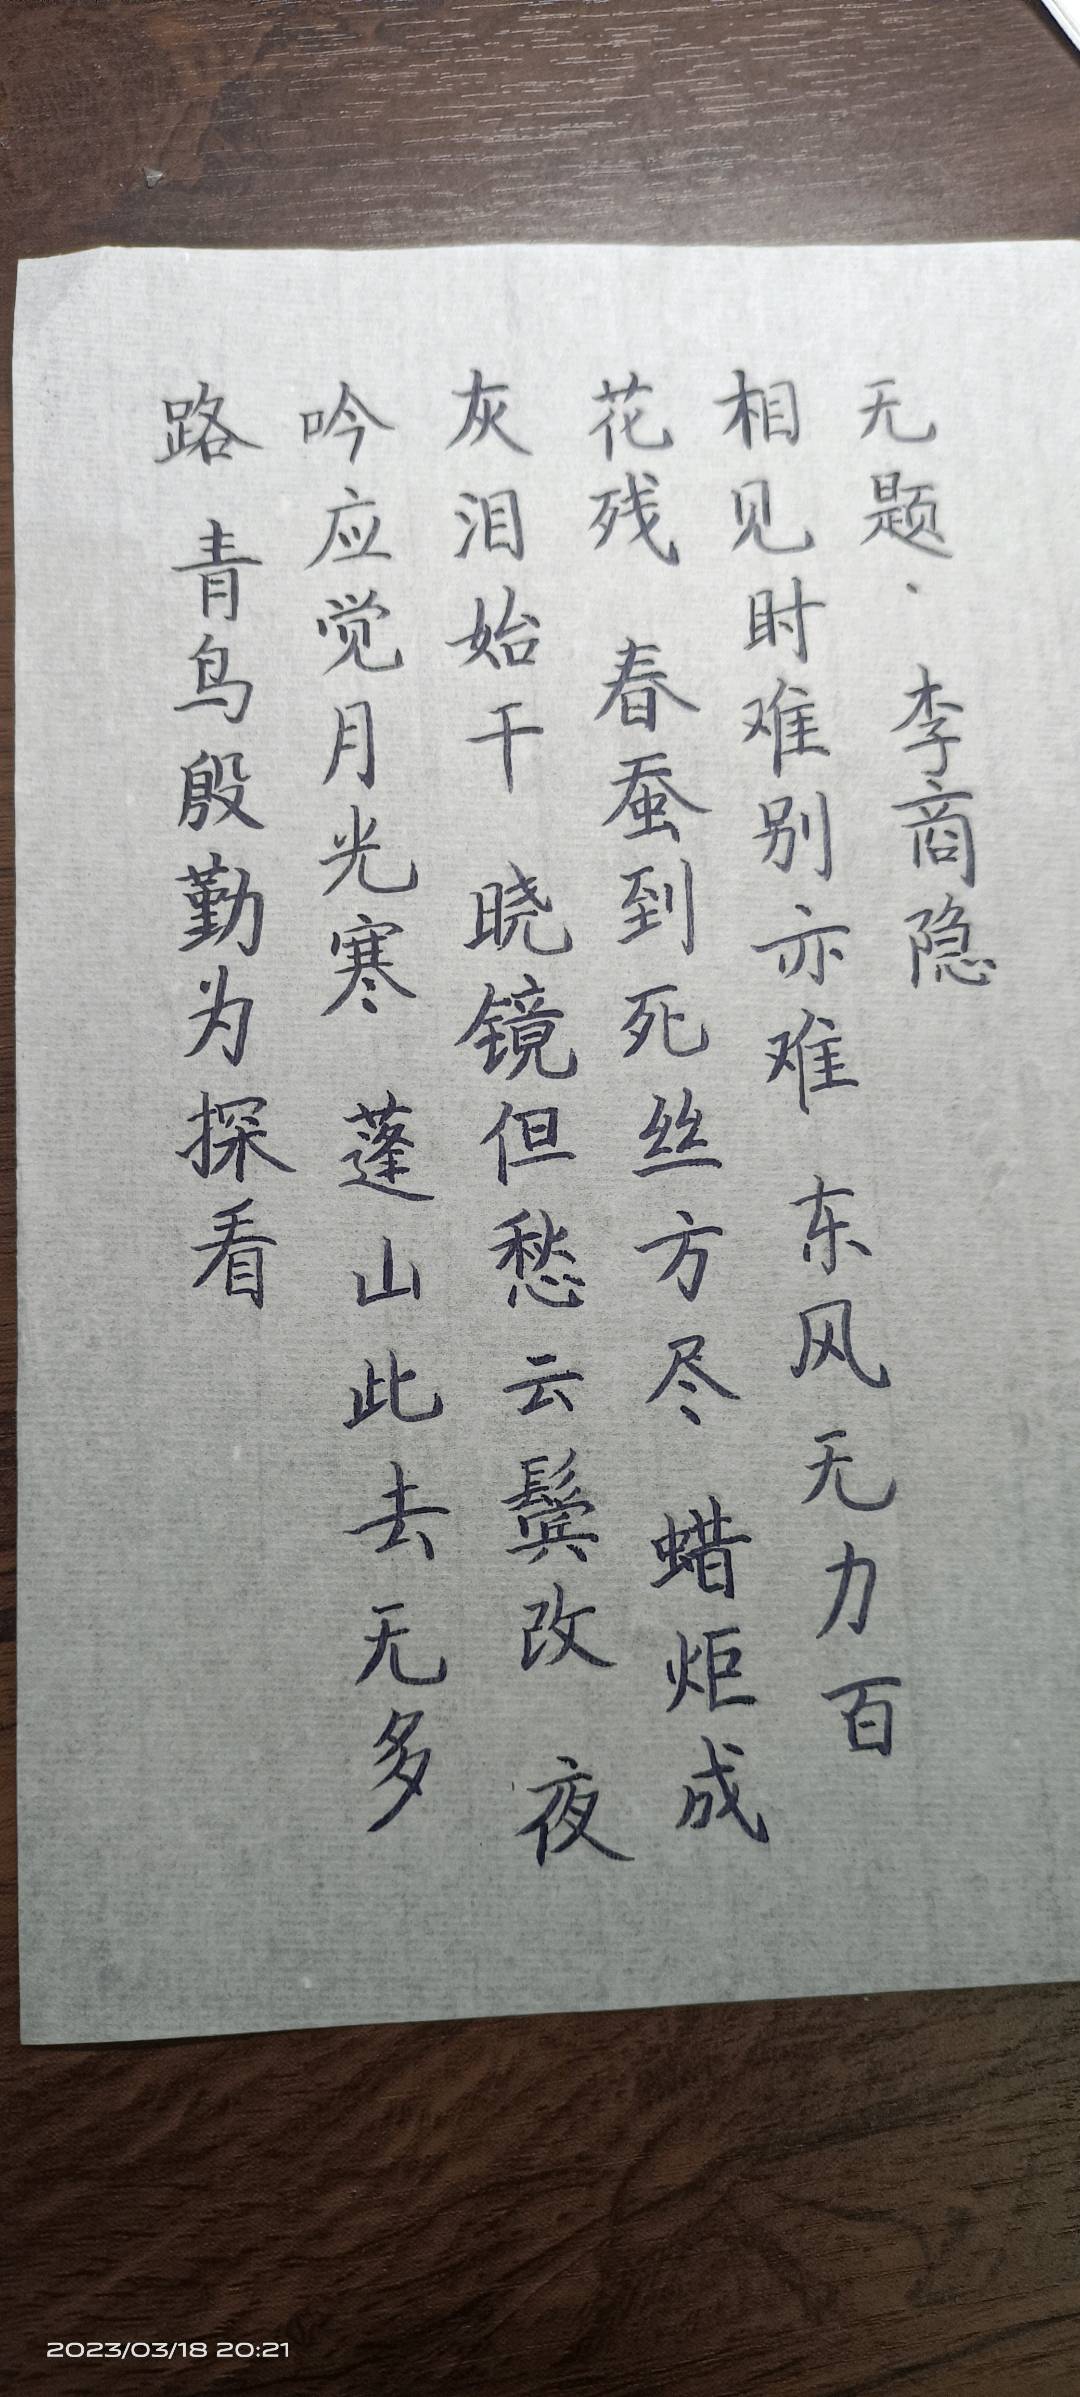 无题·李商隐
相见时难别亦难 东风无力百
花残 春蚕到死丝方尽 蜡炬成
灰泪始干 晓镜但愁云鬓改 夜
吟应觉月光寒 蓬山此去无多
路 青鸟殷勤为探看
2023/03/18 20:21